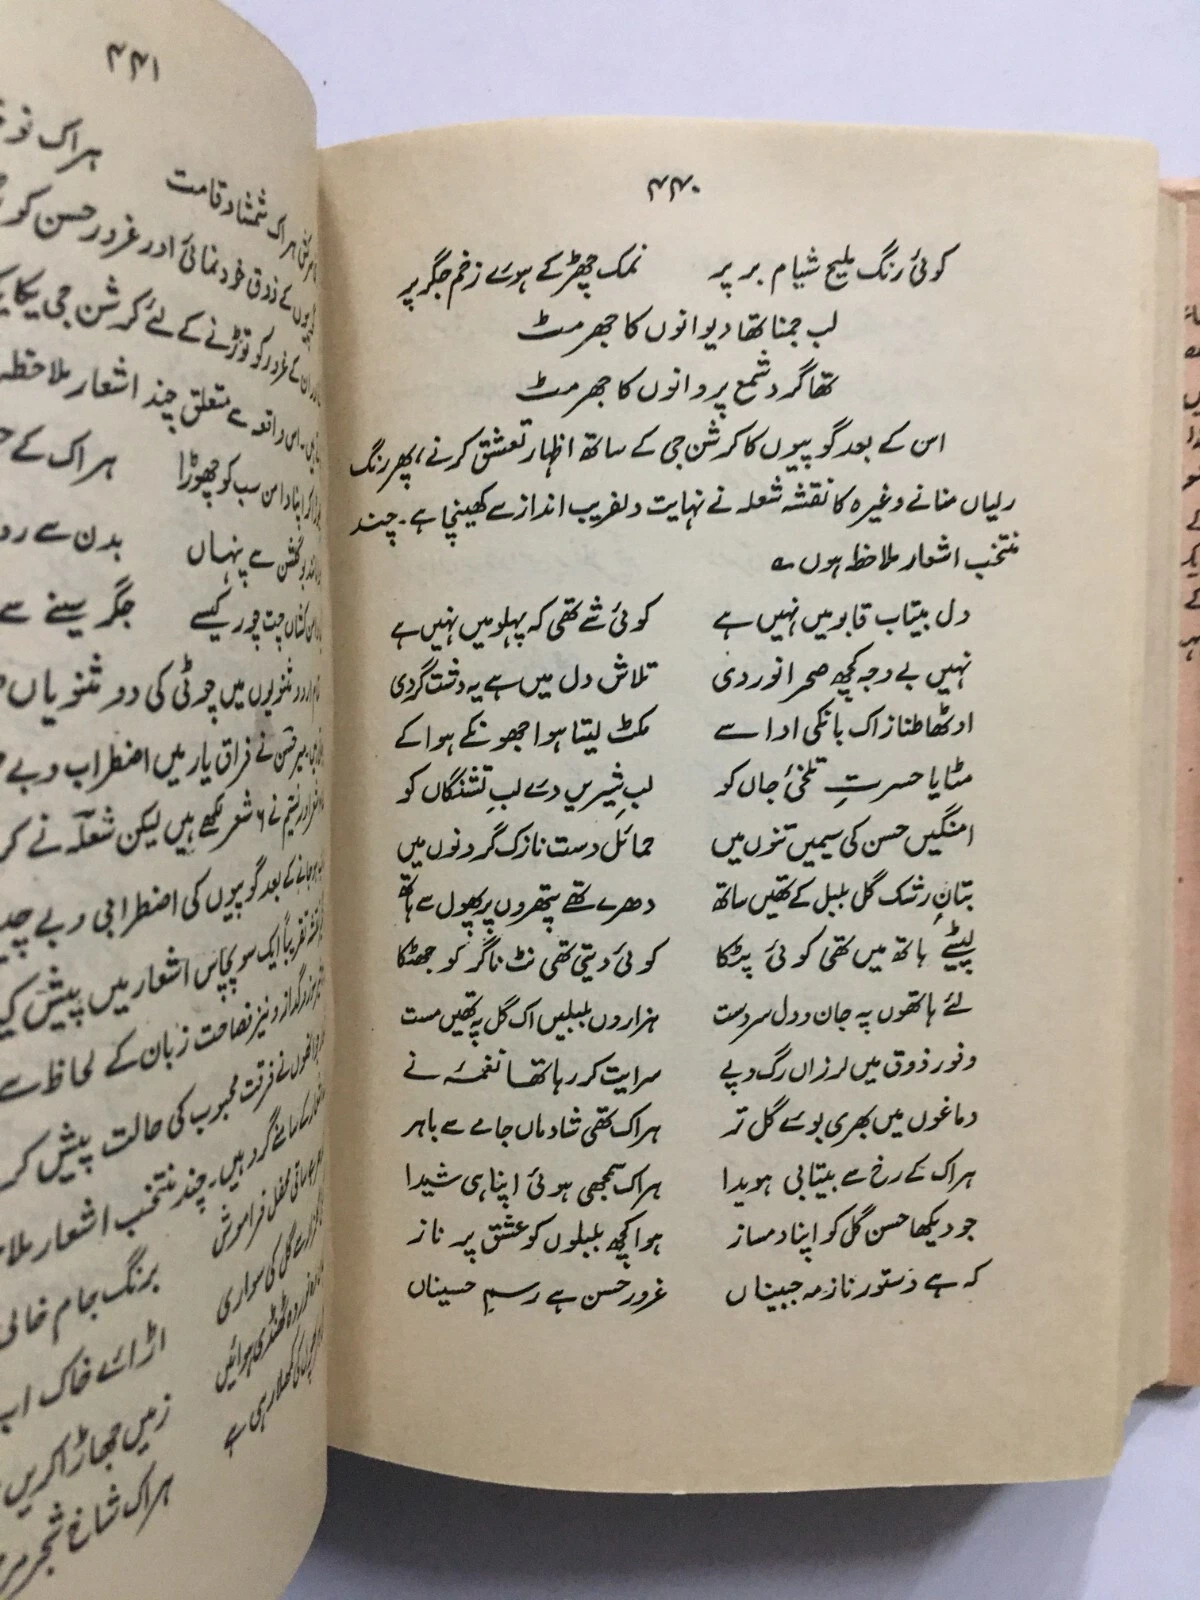 ۴۴۰
کوئی رنگ ملیح شیام بر پر نمک چھڑکے ہوئے زخم جگر پر
لب جمنا تھا دیوانوں کا جھرمٹ
تھا گرد شمع پروانوں کا جھرمٹ
اس کے بعد گوپیوں کا کرشن جی کے ساتھ اظہار تعشق کرنے، پھر رنگ
رلیاں منانے وغیرہ کا نقشہ شعلہ نے نہایت دلفریب انداز سے کھینچا ہے۔ چند
منتخب اشعار ملاحظہ ہوں ؎
دل بیتاب قابو میں نہیں ہے کوئی شے تھی کہ پہلو میں نہیں ہے
نہیں بے وجہ کچھ صحرا نوردی تلاش دل میں ہے یہ دشت گردی
اوٹھا طناز اک بانکی ادا سے مکٹ لیتا ہوا جھونکے ہوا کے
مٹایا حسرتِ تلخیٔ جاں کو لبِ شیریں دے لبِ تشنگاں کو
امنگیں حسن کی سیمیں تنوں میں حمائل دست نازک گردنوں میں
بتانِ رشک گل بلبل کے تھیں ساتھ دھرے تھے پتھروں پر پھول سے ہاتھ
لپٹے ہاتھ میں تھی کوئی پٹکا کوئی دیتی تھی نٹ ناگر کو جھٹکا
لئے ہاتھوں پہ جان و دل سردست ہزاروں بلبلیں اک گل پہ تھیں مست
وفور ذوق میں لرزاں رگ و پے سرایت کر رہا تھا نغمہ نے
دماغوں میں بھری بوئے گل تر ہر اک تھی شادماں جامے سے باہر
ہر اک کے رخ سے بیتابی ہویدا ہر اک سمجھی ہوئی اپنا ہی شیدا
جو دیکھا حسن گل کو اپنا دمساز ہوا کچھ بلبلوں کو عشق پر ناز
کہ ہے دستور ناز مہ جبیناں غرور حسن ہے رسمِ حسیناں
۴۴۱
ہر اک شمشاد قامت ہر اک نو
کے ذوق خود نمائی اور غرور حسن کو
کے غرور کو توڑنے کے لئے کرشن جی یکایک
اس واقعہ سے متعلق چند اشعار ملاحظہ
اپنا دامن سب کو چھوڑا ہر اک کے
گلشن سے پنہاں بدن سے
چت چور کیسے جگر سینے سے
اردو مثنویوں میں چوٹی کی دو مثنویاں
میر حسن نے فراق یار میں اضطراب و بے
اور نسیم نے ۶ شعر لکھے ہیں لیکن شعلہ نے
جانے کے بعد گوپیوں کی اضطرابی و بے
تقریباً ایک سو پچاس اشعار میں پیش
و گداز و نیز فصاحت زبان کے لحاظ سے
نے فرقت محبوب کی حالت پیش کر
کے سامنے گرد ہیں۔ چند منتخب اشعار
محفل فراموش برنگ جام خالی
گل کی سواری اڑائے خاک
ٹھنڈی ہوائیں زمیں جھاڑا کریں
رہی ہے ہر اک شاخ شجر